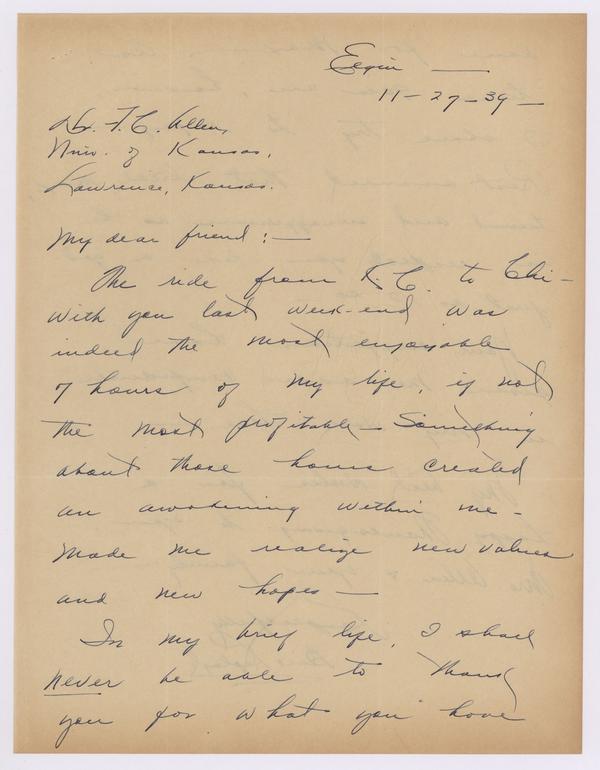 Elgin —
11-27-39-
Dr. F. C. Allen,
Univ. of Kansas,
Lawrence, Kansas.
My dear friend :—
The ride from K.C. to Chi-
with you last week-end was
indeed the most enjoyable
7 hours of my life, if not
the most profitable - Something
about those hours created
an awakening within me -
made me realize new values
and new hopes —
In my brief life, I shall
never be able to thank
you for what you have